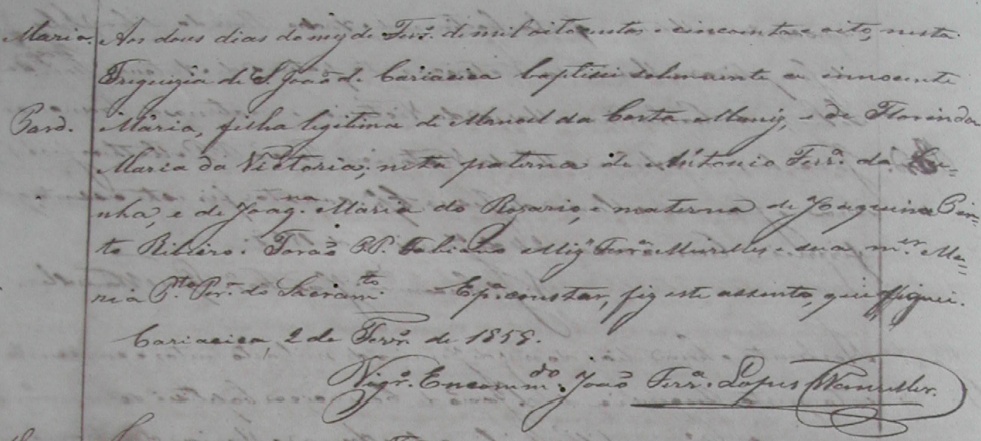 Maria. Aos dous dias do mez de Fevº. de mil oitocentos e cincoenta e oito, nesta
Freguezia de S. João de Cariacica baptisei solmninte a innocente
Pard. Maria, filha legitima de Manoel da Costa e de Florinda
Maria da Victoria; neta paterna de Antonio Ferrª. da Cu=
nha, e de Joaqna. Maria do Rozario, e materna de Joaquina Pin=
to Ribeiro: Forão PP. Fabiano e sua mer. Ma=
ria Pta. do Sacramto. Epª. constar, fiz este assento, que figuei.
Cariacica, 2 de Fevº. de 1858.
Vigrº. Encommdo. João Ferrª. Lopes Wanseller.